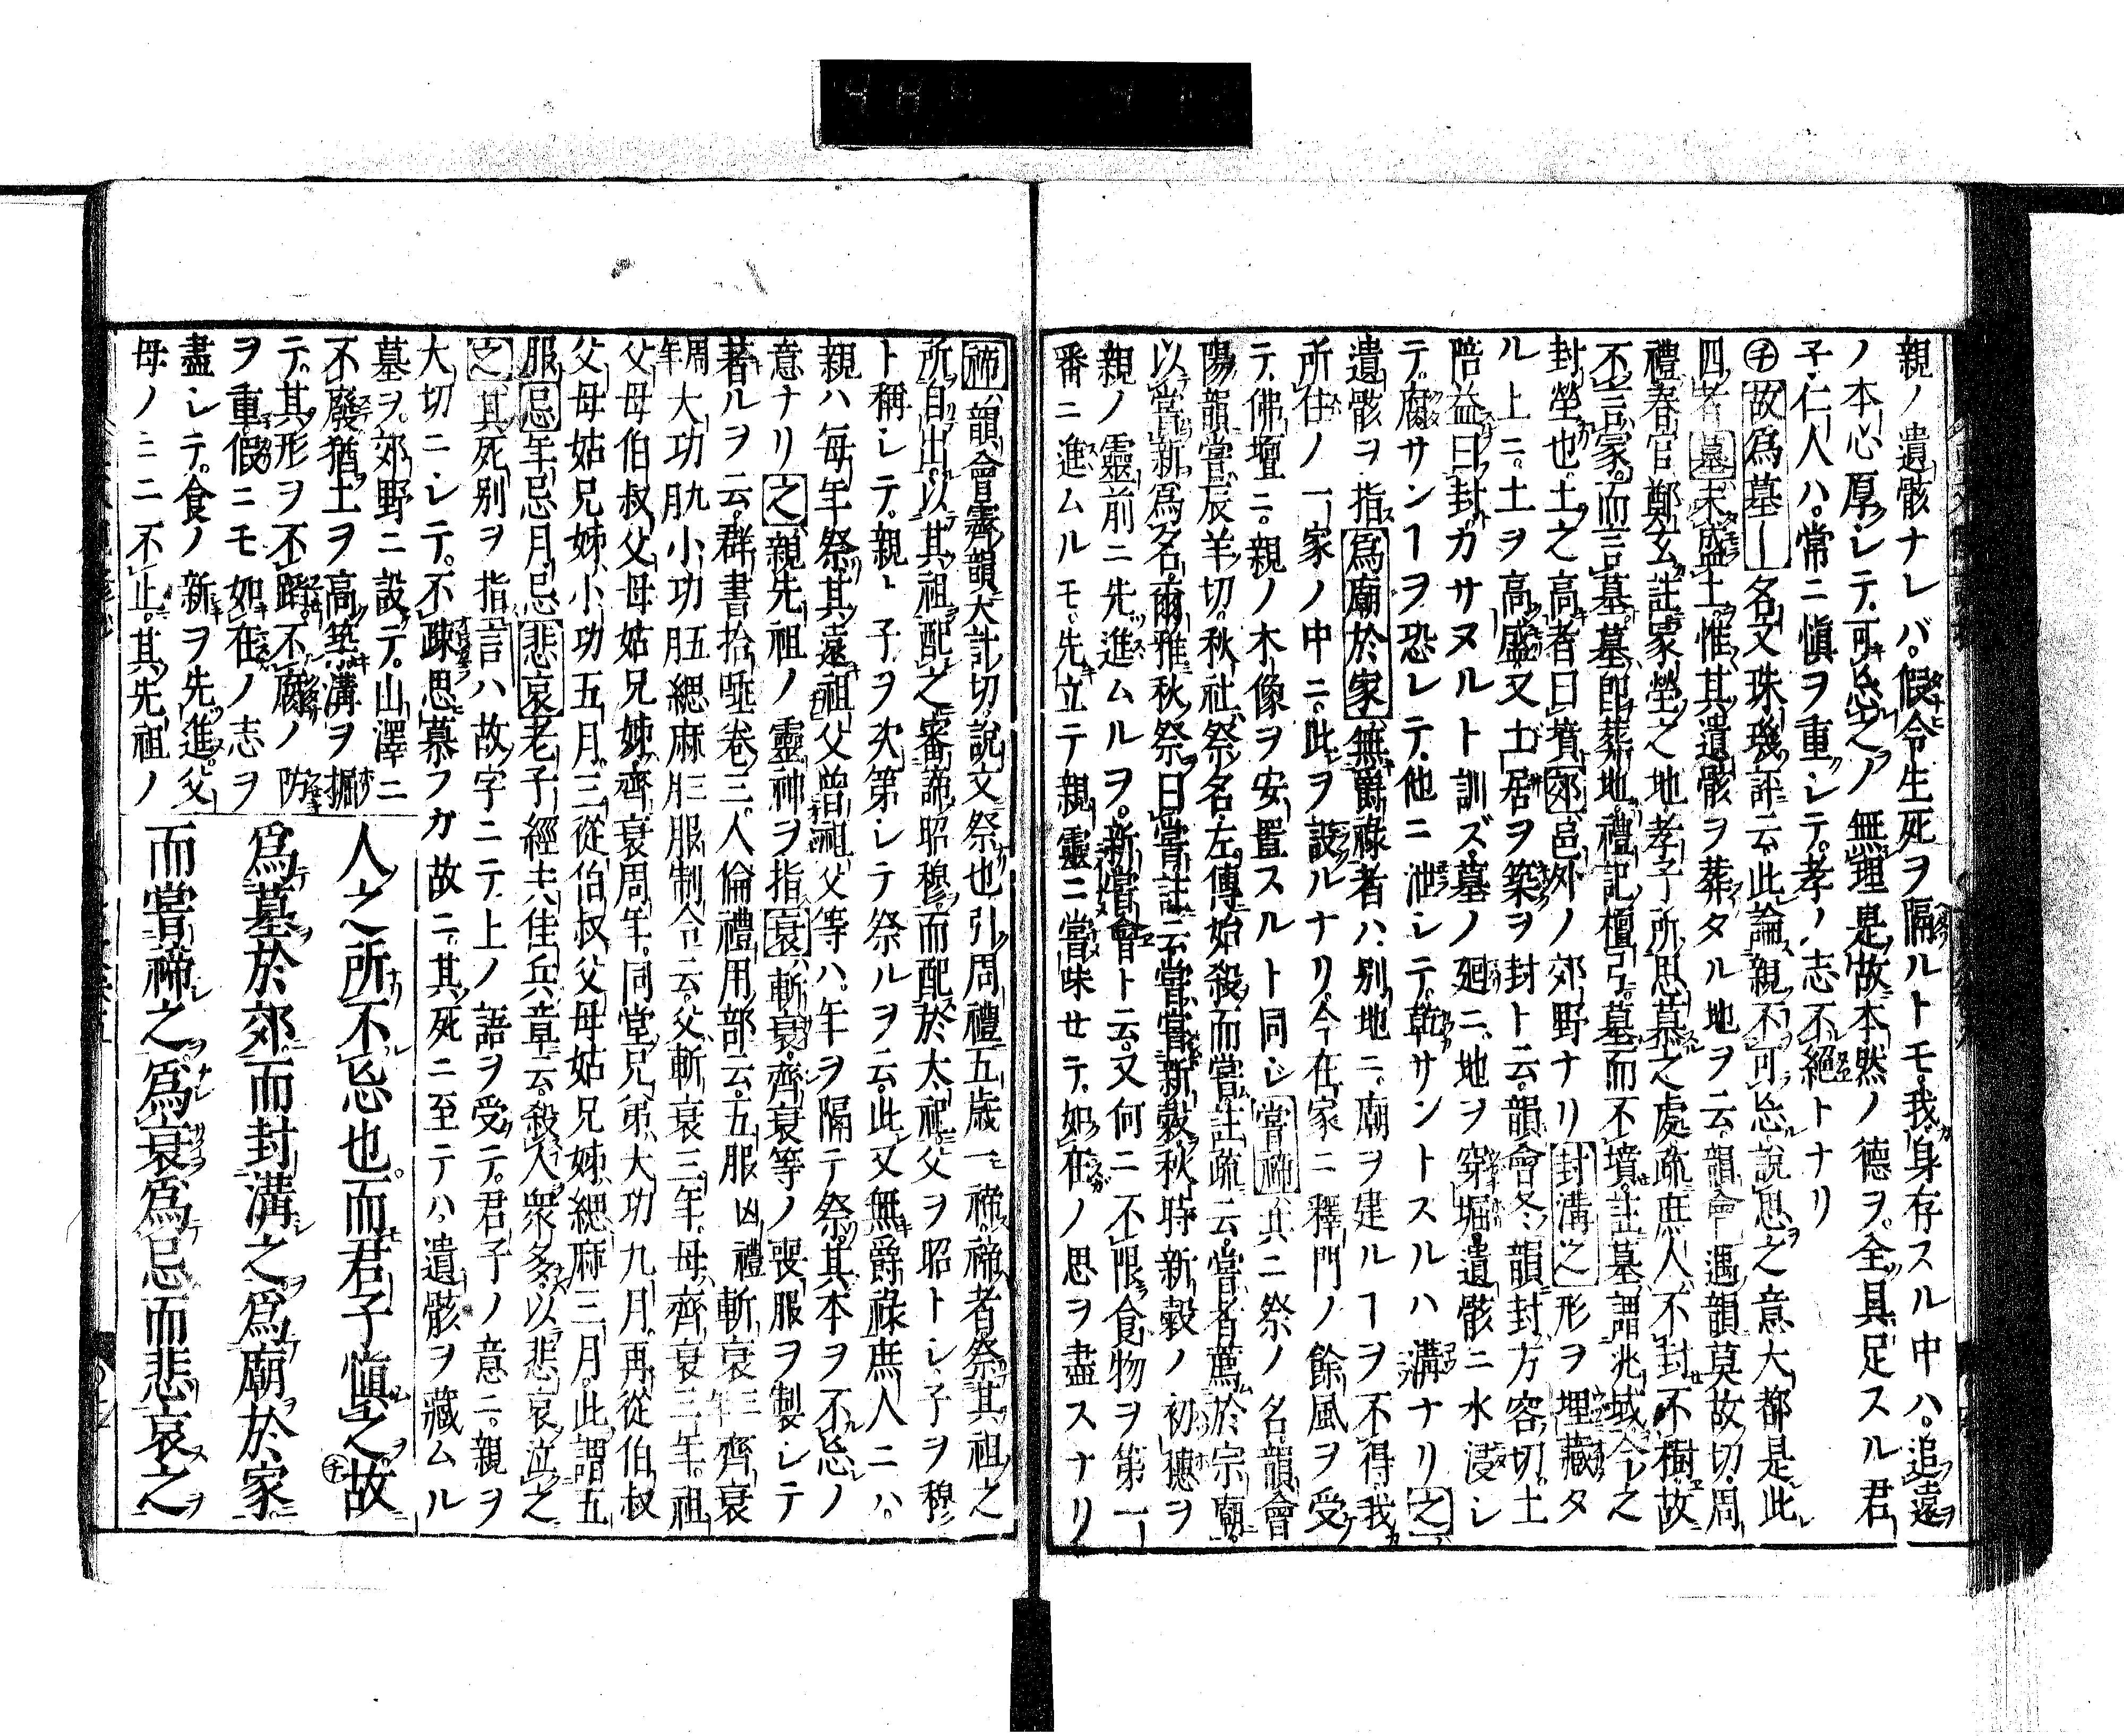 親ノ遺骸ナレバ。假令生死ヲ隔ルトモ。我身存スル中ハ。追遠
ノ本心厚シテ。可忘之ノ無理是故本然ノ德ヲ。全具足スル君
子仁人ハ。常ニ愼ヲ重シテ。孝ノ志不絕トナリ
㋠故爲墓名文珠璣評云。此論親不可忘說思之意大都是此
四者墓末盛土。惟其遺骸ヲ葬タル地ヲ云。韻會遇韻莫故切。周
禮春官鄭玄註冢塋之地孝子所思慕之處疏庶人不封不樹故
不言冢。而言墓。墓卽葬地。禮記檀弓。墓而不墳。註墓謂兆域今之
封塋也。土之高者曰墳郊邑外ノ郊野ナリ封溝之形ヲ埋藏タ
ル上ニ。土ヲ高盛又土居ヲ築ヲ封ト云。韻會冬韻封方容切。土
陪益曰封カサヌルト訓ズ墓ノ廻ニ。地ヲ穿堀。遺骸ニ水浸シ
テ。腐サンヿヲ恐レテ。他ニ泄シテ。乾サントスルハ溝ナリ之
遺骸ヲ指爲廟於家無爵祿者ハ。別地ニ。廟ヲ建ルヿヲ不得。我
所住ノ一家ノ中ニ。此ヲ設ルナリ。今在家ニ釋門ノ餘風ヲ受
テ。佛壇ニ。親ノ木像ヲ安置スルト同シ嘗禘共ニ祭ノ名韻會
陽韻嘗辰羊切。秋社祭名。左傳始殺而嘗註疏云。嘗者薦於宗廟。
以嘗新爲名。爾雅秋祭曰嘗註云嘗嘗新穀秋時新穀ノ初穗ヲ
親ノ靈前ニ先進ムルヲ。新嘗會ト云。又何ニ不限食物ヲ第一
番ニ進ムルモ。先立テ親靈ニ嘗味セテ。如在ノ思ヲ盡スナリ
禘韻會霽韻大計切。說文祭也引周禮五歲一禘。禘者祭其祖之
所自出。以其祖配之審諦昭穆。而配於太祖。父ヲ昭トシ。子ヲ穆
ト稱シテ。親ト子ヲ次第シテ祭ルヲ云。此又無爵祿庶人ニハ。
親ハ每年祭其遠祖父曾祖父等ハ。年ヲ隔テ祭。其本ヲ不忘ノ
意ナリ之親先祖ノ靈神ヲ指衰斬衰。齊衰等ノ喪服ヲ製シテ
著ルヲ云。群書拾唾卷三。人倫禮用部云。五服凶禮斬衰三年齊衰
周年大功九月小功五月緦麻三月服制令云。父斬衰三年。母齊衰三年。祖
父母伯叔父母姑兄姊齊衰周年。同堂兄弟大功九月。再從伯叔
父母姑兄姊小功五月。三從伯叔父母姑兄姊緦麻三月。此謂五
服忌年忌月忌悲哀老子經夫佳兵章云。殺人衆多以悲哀泣之
之其死別ヲ指言ハ故字ニテ上ノ語ヲ受テ。君子ノ意ニ。親ヲ
大切ニシテ。不疎思慕フカ故ニ。其死ニ至テハ。遺骸ヲ藏ムル
墓ヲ。郊野ニ設テ。山澤ニ
不廢猶土ヲ高築溝ヲ掘
テ。其形ヲ不蹈。不腐ノ防
ヲ重假ニモ如在ノ志ヲ
盡シテ。食ノ新ヲ先進。父
母ノミニ不止。其先祖ノ
人之所不忘也。而君子愼之。㋠故
爲墓於郊而封溝之爲廟於家
而嘗禘之爲衰爲忌而悲哀之